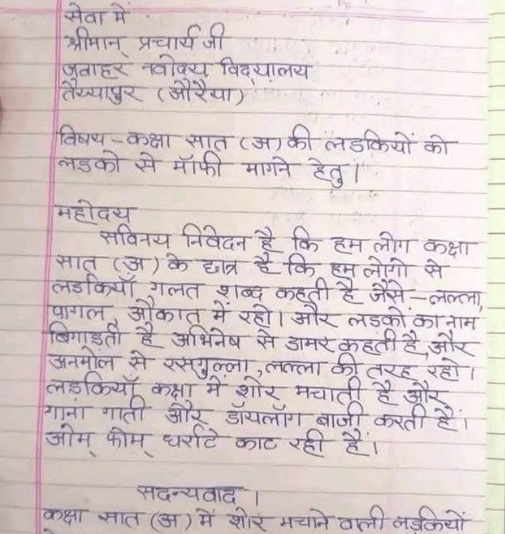 सेवा में
श्रीमान् प्रचार्य जी
जवाहर नवोदय विद्यालय
तैय्यापुर (औरैया)
विषय - कक्षा सात (अ) की लडकियों को
लडको से मॉफी मागने हेतु।
महोदय
सविनय निवेदन है कि हम लोग कक्षा
सात (अ) के छात्र है कि हम लोगो से
लडकियाँ गलत शब्द कहती है जैसे - लल्ला,
पागल, औकात में रहो। और लडको का नाम
बिगाडती है अभिनेष से डामर कहती है, और
अनमोल से रसगुल्ला, लल्ला की तरह रहो।
लडकियाँ कक्षा में शोर मचाती है और
गाना गाती और डॉयलॉग बाजी करती है।
ओम् फोम् धर्राटे काट रही है।
सदन्यवाद।
कक्षा सात (अ) में शोर मचाने वाली लडकियों